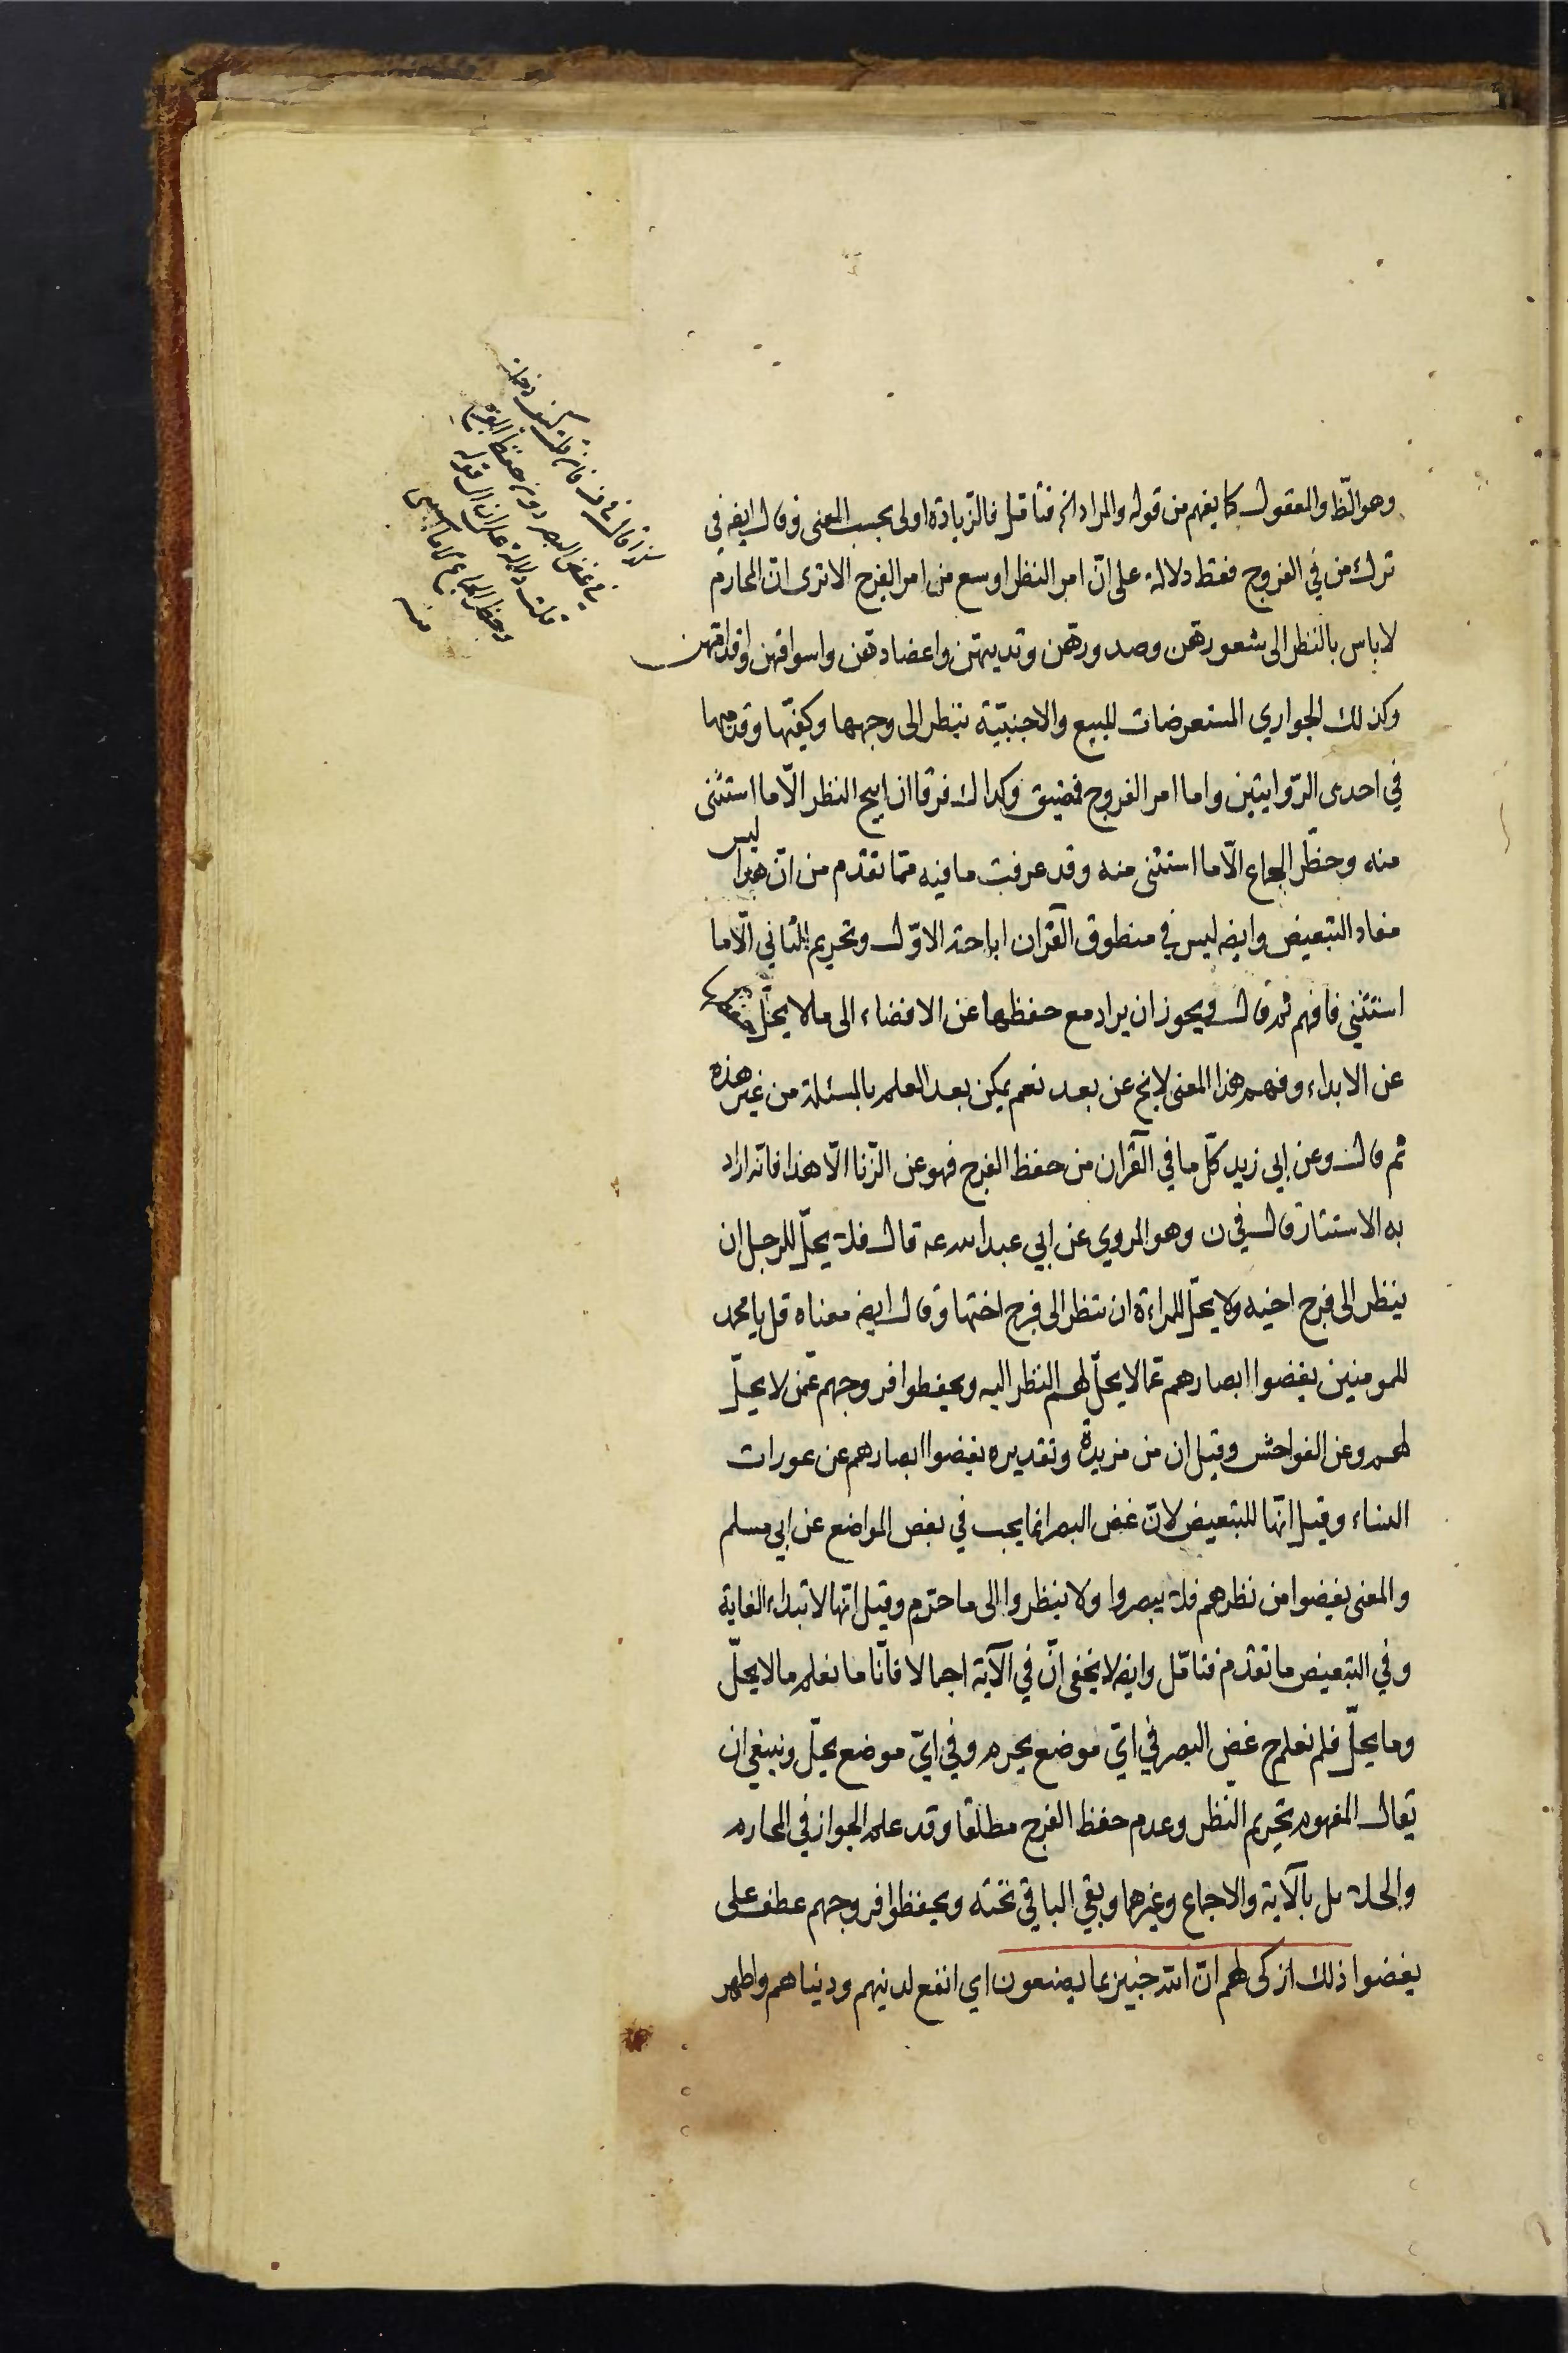 وهو الظ والمعقول كما يفهم من قوله والمراد الخ فتأمل فالزيادة اولى بحسب المعنى وقال ايضه في
ترك من في الفروج فقط دلالة على انّ امر النظر اوسع من امر الفرج الا ترى انّ المحارم
لا باس بالنظر الى شعورهن وصدورهن وثديهن واعضادهن واسواقهن واقدامهن
وكذلك الجواري المستعرضات للبيع والاجنبيّة ينظر الى وجهها وكفيّها وقدميها
في احدى الرّوايتين واما امر الفروج فمضيق وكذاك فرقا ان ابيح النظر الّا ما استثنى
منه وحظر الجماع الّا ما استثنى منه وقد عرفت ما فيه ممّا تقدّم من انّ هذا ليس
مفاد التبعيض وايضه ليس في منطوق القرآن اباحة الاوّل وتحريم الثاني الّا ما
استثني فافهم ثم قال ويجوز ان يراد مع حفظها عن الافضاء الى ما لا يحلّ
عن الابداء وفهم هذا المعنى لايخ عن بعد نعم يمكن بعد العلم بالمسئلة من غير هذه
ثم قال وعن ابي زيد كلّ ما في القرآن من حفظ الفرج فهو عن الزّنا الّا هذا فانّه اراد
به الاستتار قال في ن وهو المروي عن ابي عبد الله عه قال فلا يحلّ للرجل ان
ينظر الى فرج اخيه ولا يحلّ للمراءة ان تنظر الى فرج اختها وقال ايضه معناه قل يا محمد
للمومنين يغضوا ابصارهم عمّا لا يحلّ لهم النظر اليه ويحفظوا فروجهم عمّن لا يحلّ
لهم وعن الفواحش وقيل ان من مزيدة وتقديره يغضوا ابصارهم عن عورات
النساء وقيل انّها للتبعيض لانّ غض البصر انما يجب في بعض المواضع عن ابي مسلم
والمعنى يغضوا من نظرهم فلا يبصروا ولا ينظروا الى ما حرّم وقيل انها لابتداء الغاية
وفي التبعيض ما تقدّم فتامّل وايضه لا يخفى انّ في الآية اجمالا فانّا ما نعلم ما لا يحلّ
وما يحلّ فلم نعلم ح غض البصر في ايّ موضع يحرم وفي ايّ موضع يحلّ وينبغي ان
يقال المفهوم تحريم النظر وعدم حفظ الفرج مطلقا وقد علم الجواز في المحارم
والحلائل بالآية والاجماع وغيرهما وبقي الباقي تحته ويحفظوا فروجهم عطف على
يغضوا ذلك ازكى لهم انّ الله خبير بما يصنعون اي انفع لدينهم ودنياهم واطهر